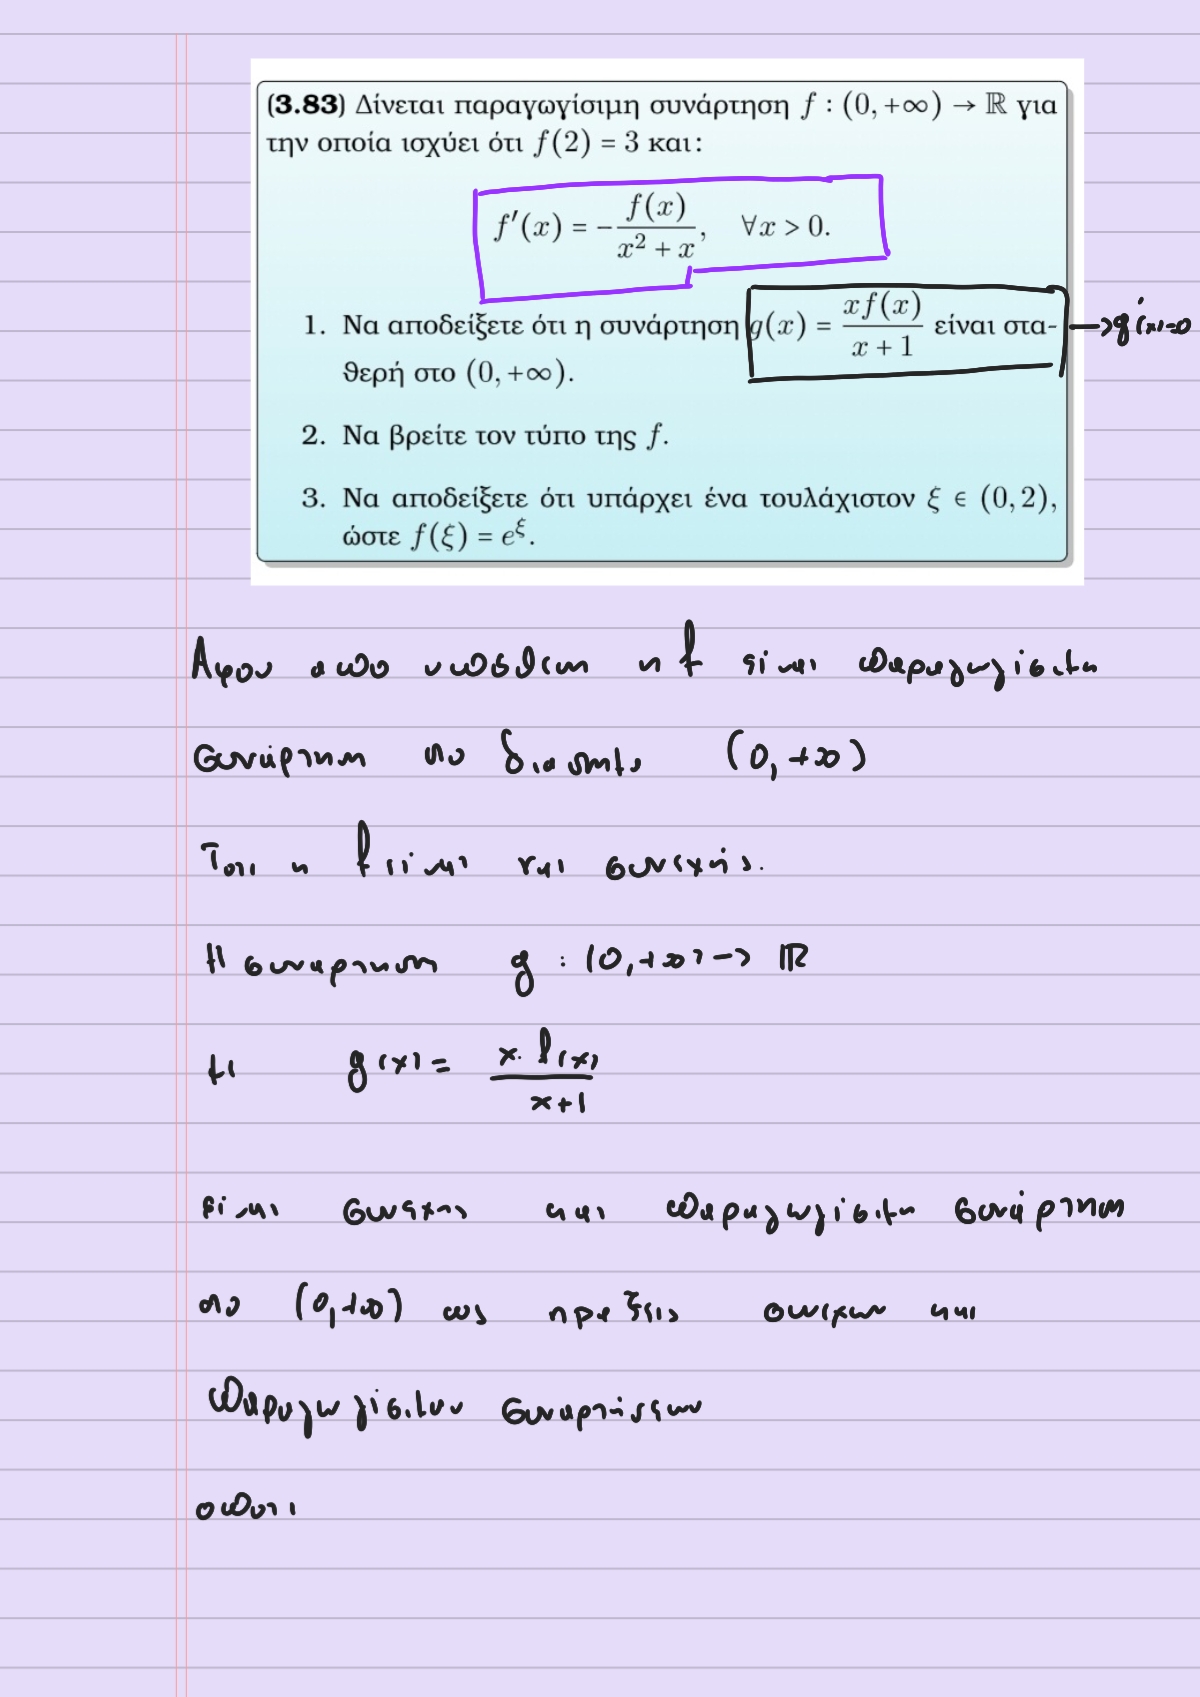 (3.83) Δίνεται παραγωγίσιμη συνάρτηση f : (0, +∞) → ℝ για
την οποία ισχύει ότι f(2) = 3 και:
f′(x) = −f(x)/(x² + x), ∀x > 0.
1. Να αποδείξετε ότι η συνάρτηση g(x) = xf(x)/(x + 1) είναι στα- → g′(x)=0
θερή στο (0, +∞).
2. Να βρείτε τον τύπο της f.
3. Να αποδείξετε ότι υπάρχει ένα τουλάχιστον ξ ∈ (0, 2),
ώστε f(ξ) = e^ξ.
Αφου απο υποθεση η f είναι παραγωγίσιμη
συνάρτηση στο διαστημα (0, +∞)
Τοτε η f είναι και συνεχής.
Η συναρτηση g : (0, +∞) → ℝ
με g(x) = x·f(x)/(x+1)
είναι συνεχης και παραγωγίσιμη συνάρτηση
στο (0, +∞) ως πραξεις συνεχων και
παραγωγίσιμων συναρτήσεων
οποτε